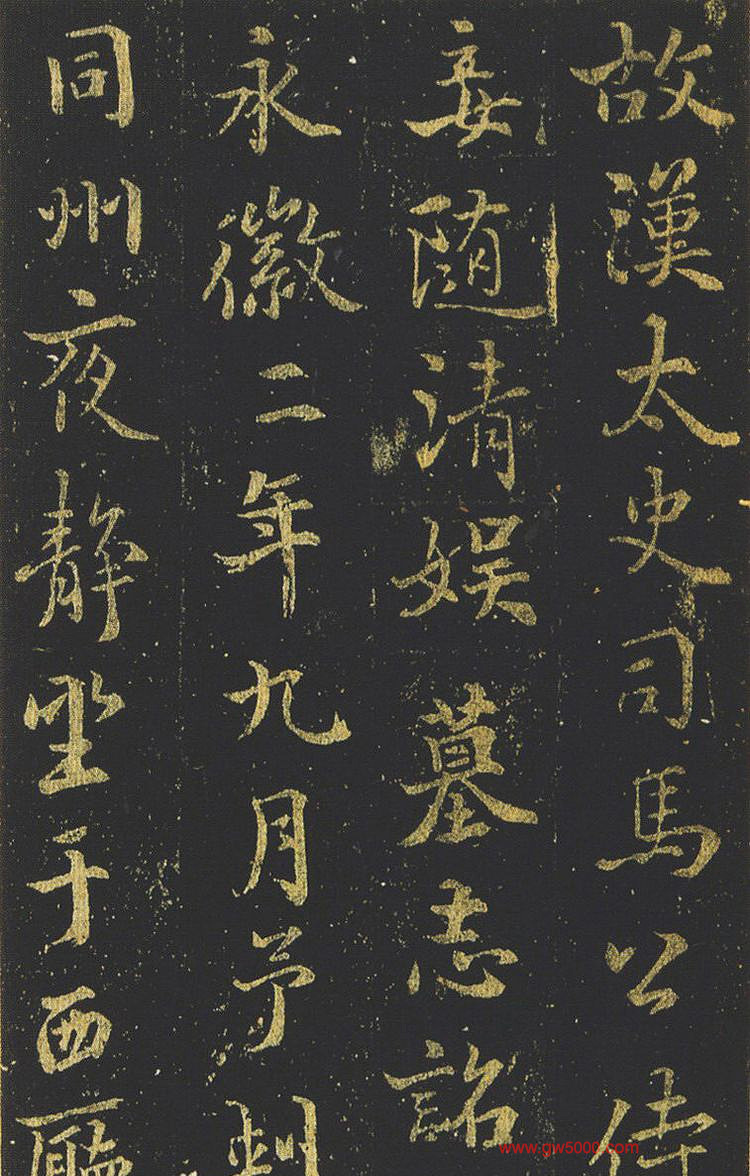 故漢太史司馬公侍
妾随清娱墓志銘
永徽二年九月予判
同州夜静坐于西廳
www.gw5000.com